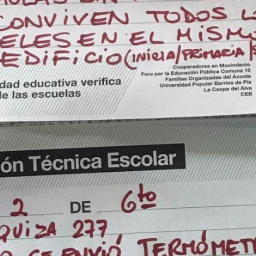 CONVIVEN TODOS L
ELES EN EL MISM
EDIFICIO (INICIA/PRIMARIA/
Cooperadores en Movimiento
Foro por la Educación Pública Comuna 10
Familias Organizadas del Acosta
Universidad Popular Barrios de Pie
La Coope del Alva
CEB
dad educativa verifica
le las escuelas
ón Técnica Escolar
2 DE 6to
QUIZA 277,
SE ENVIÓ TERMÓMET